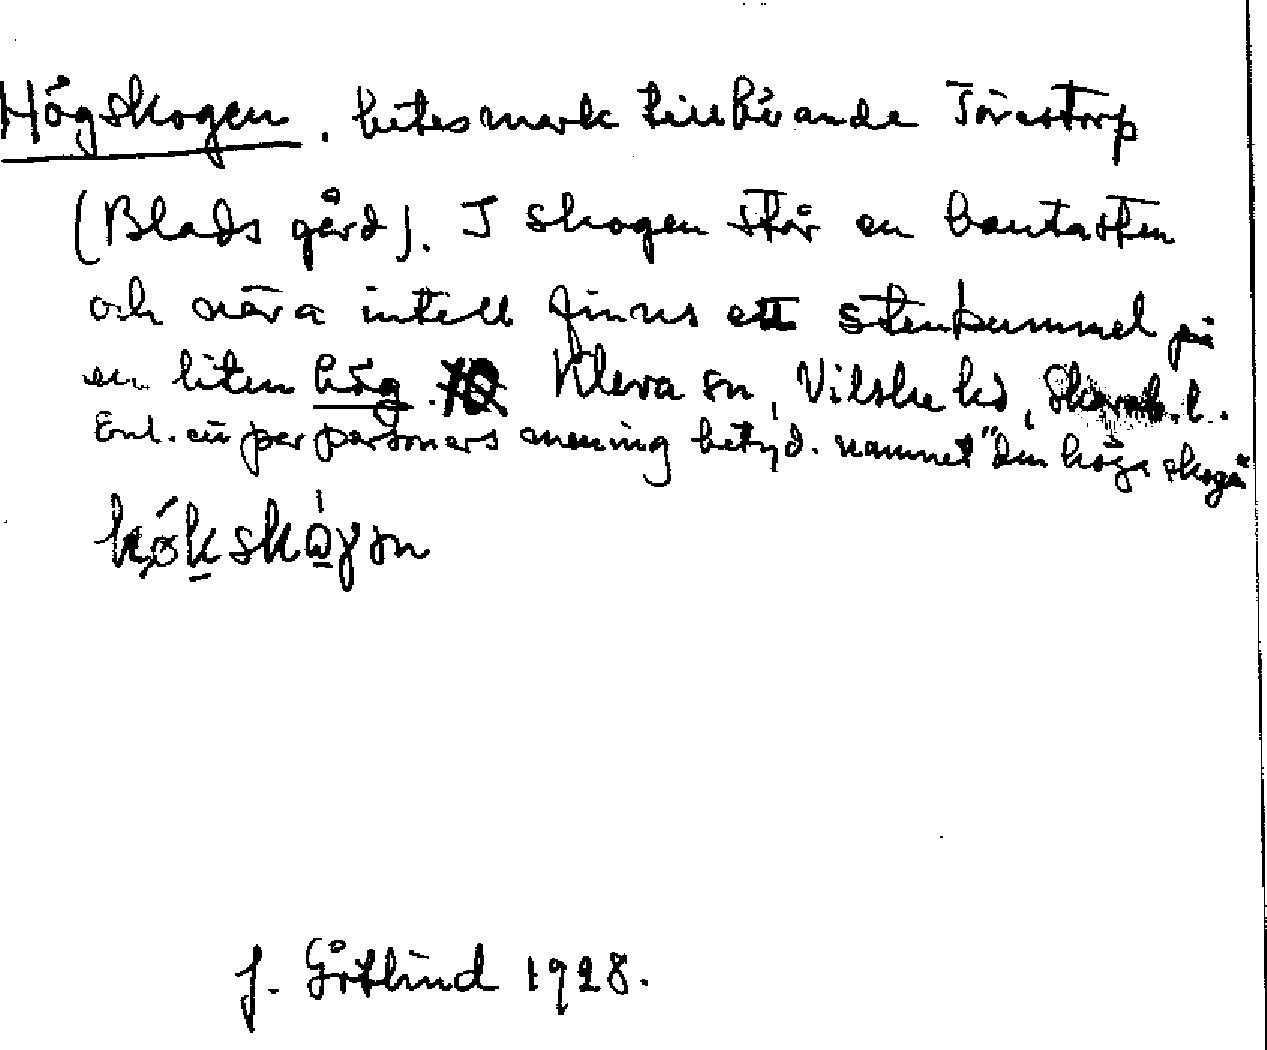 Högskogen. betesmark tillhörande Torestorp
(Blads gård). I skogen står en bautasten
och nära intill finns ett stenkummel på
en liten hög. Kleva sn, Vilske hd, Skarab. l.
Enl. ett par personers mening betyd. namnet "den höga skogen"
hø̀kskògən
J. Götlind 1928.